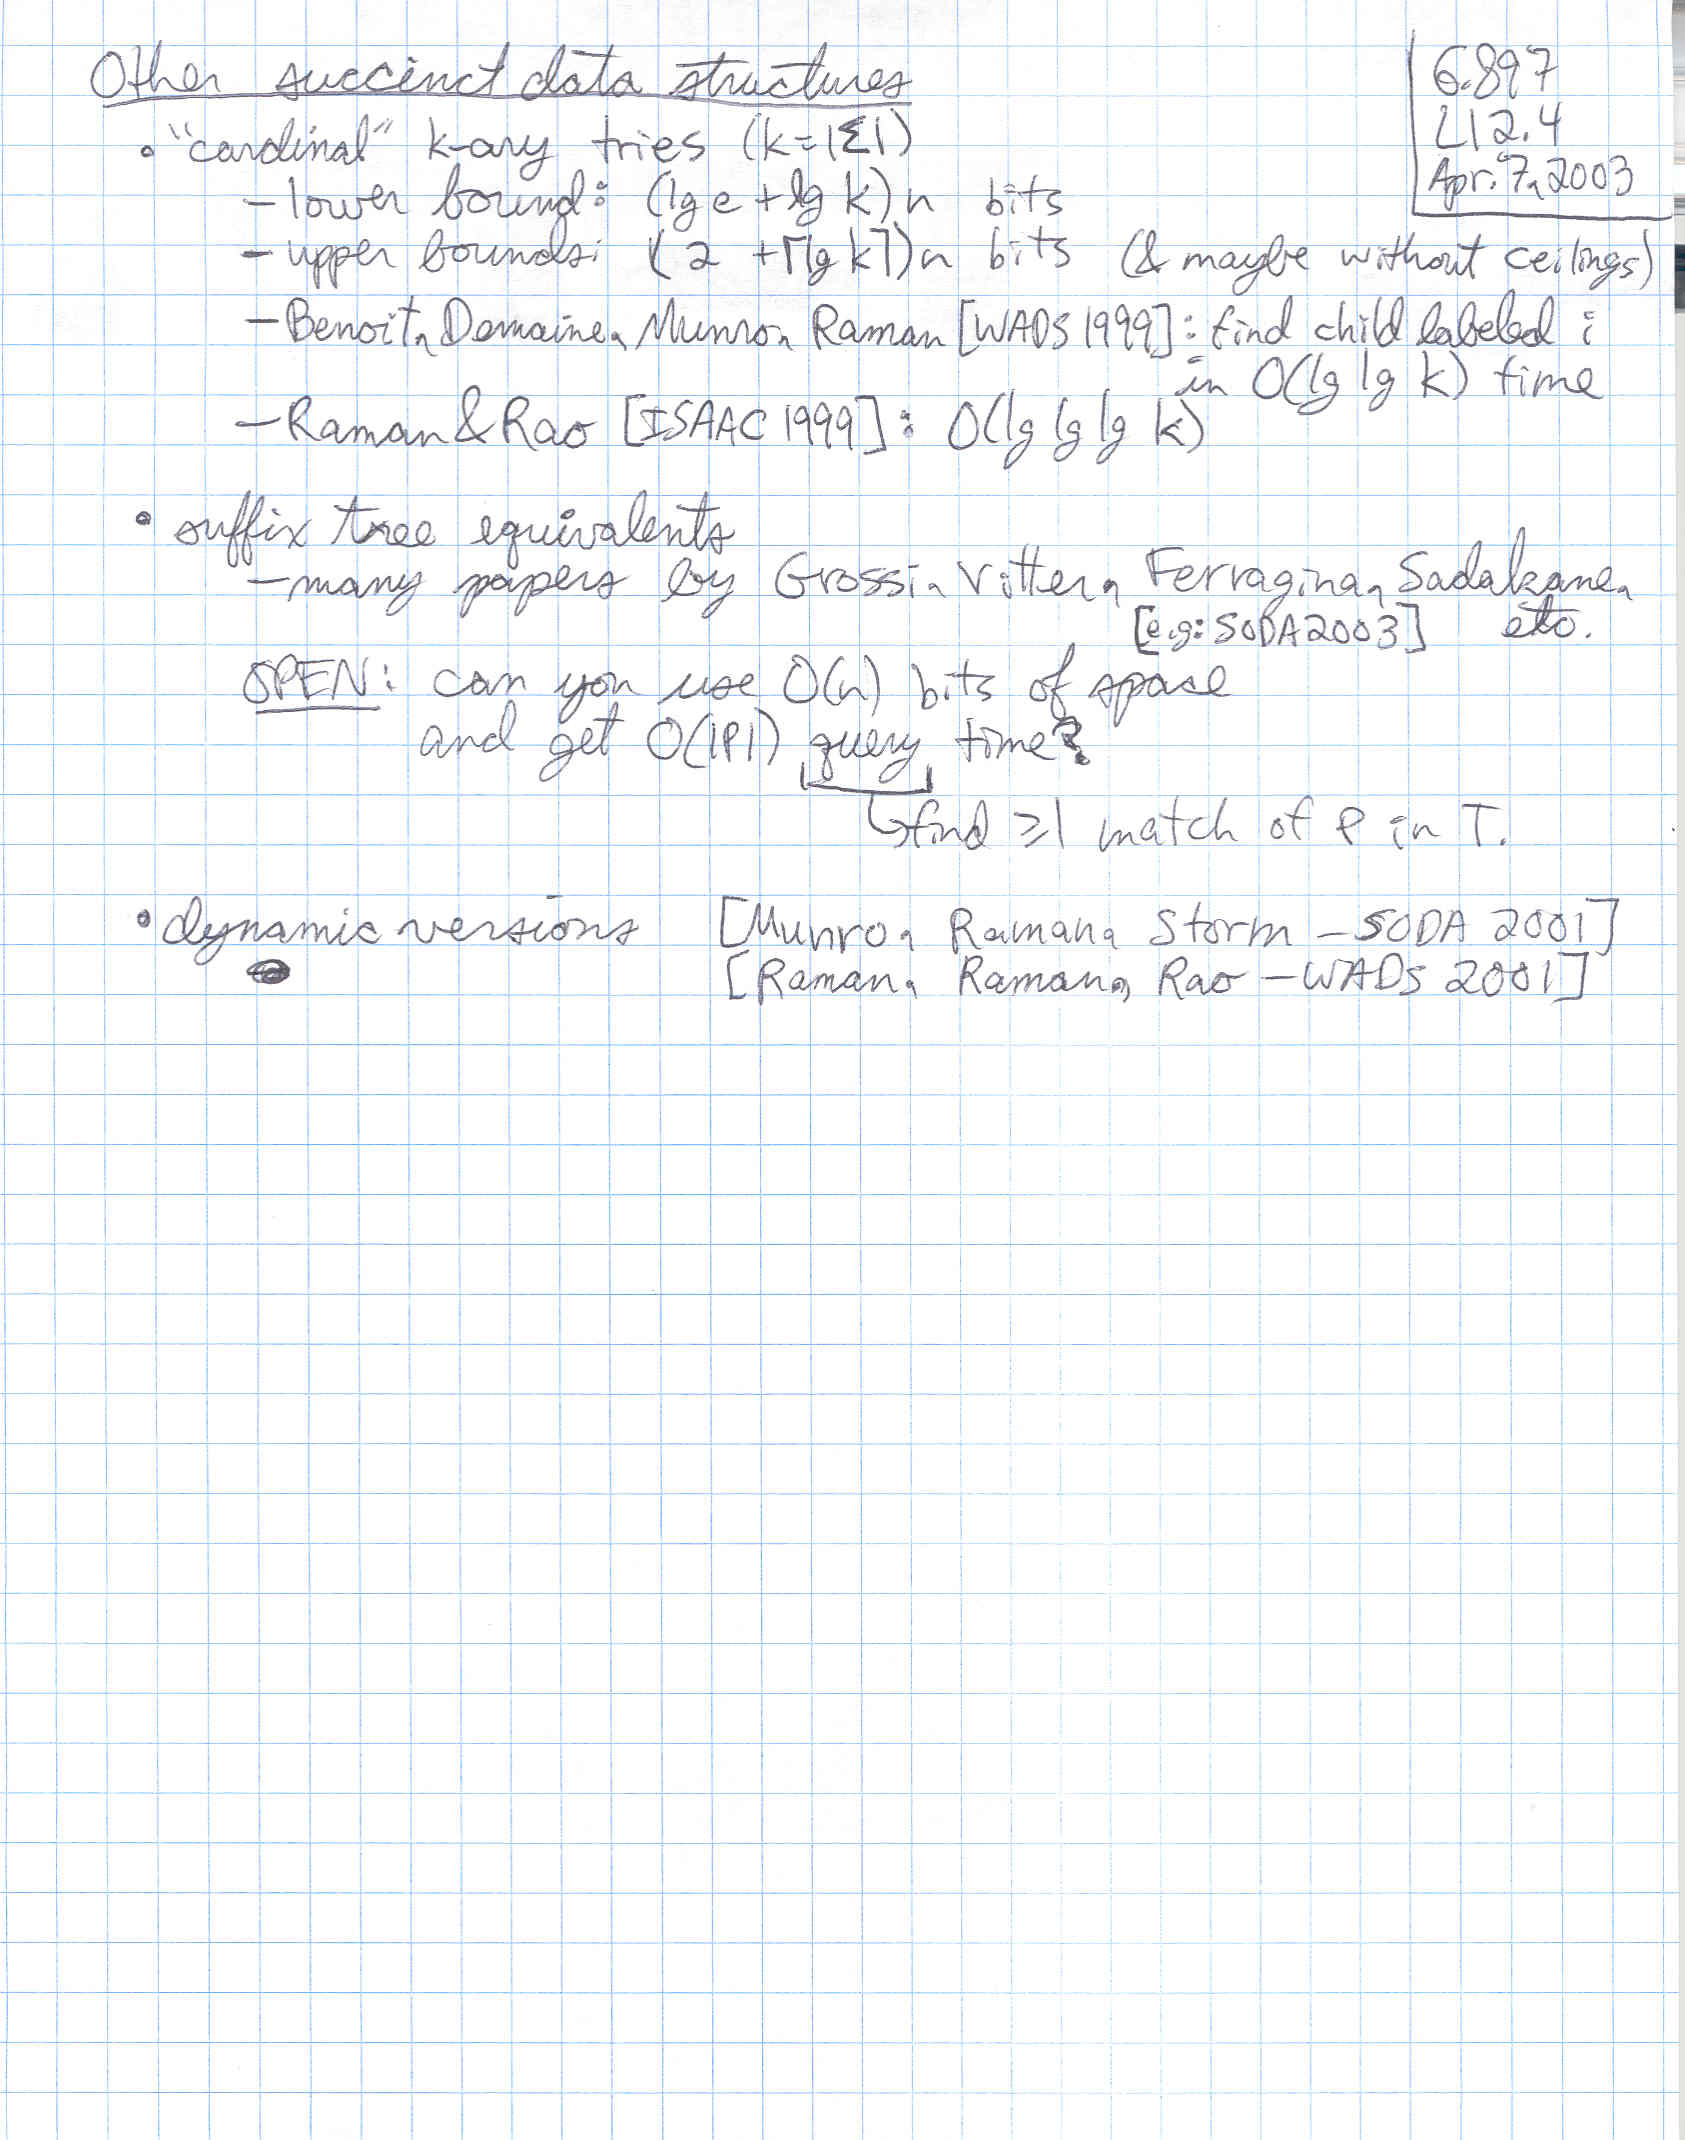 Other succinct data structures
6.897
L12.4
Apr. 7, 2003
• "cardinal" k-ary tries (k=|Σ|)
– lower bound: (lg e + lg k)n bits
– upper bounds: (2 + ⌈lg k⌉)n bits (& maybe without ceilings)
– Benoit, Demaine, Munro, Raman [WADS 1999]: find child labeled i
in O(lg lg k) time
– Raman & Rao [ISAAC 1999]: O(lg lg lg k)
• suffix tree equivalents
– many papers by Grossi, Vitter, Ferragina, Sadakane,
[e.g: SODA 2003] etc.
OPEN: can you use O(n) bits of space
and get O(|P|) query time?
↳ find ≥1 match of P in T.
• dynamic versions [Munro, Raman, Storm – SODA 2001]
[Raman, Raman, Rao – WADS 2001]